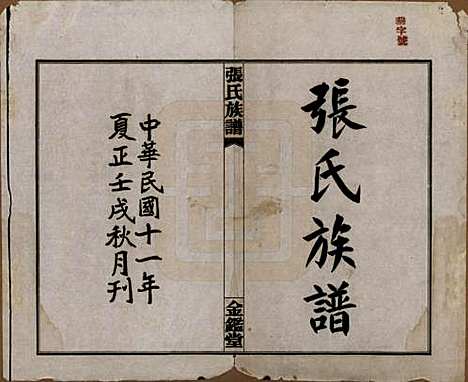 張氏族譜
張氏族譜
金鑑堂
中華民國十一年
夏正壬戌秋月刊